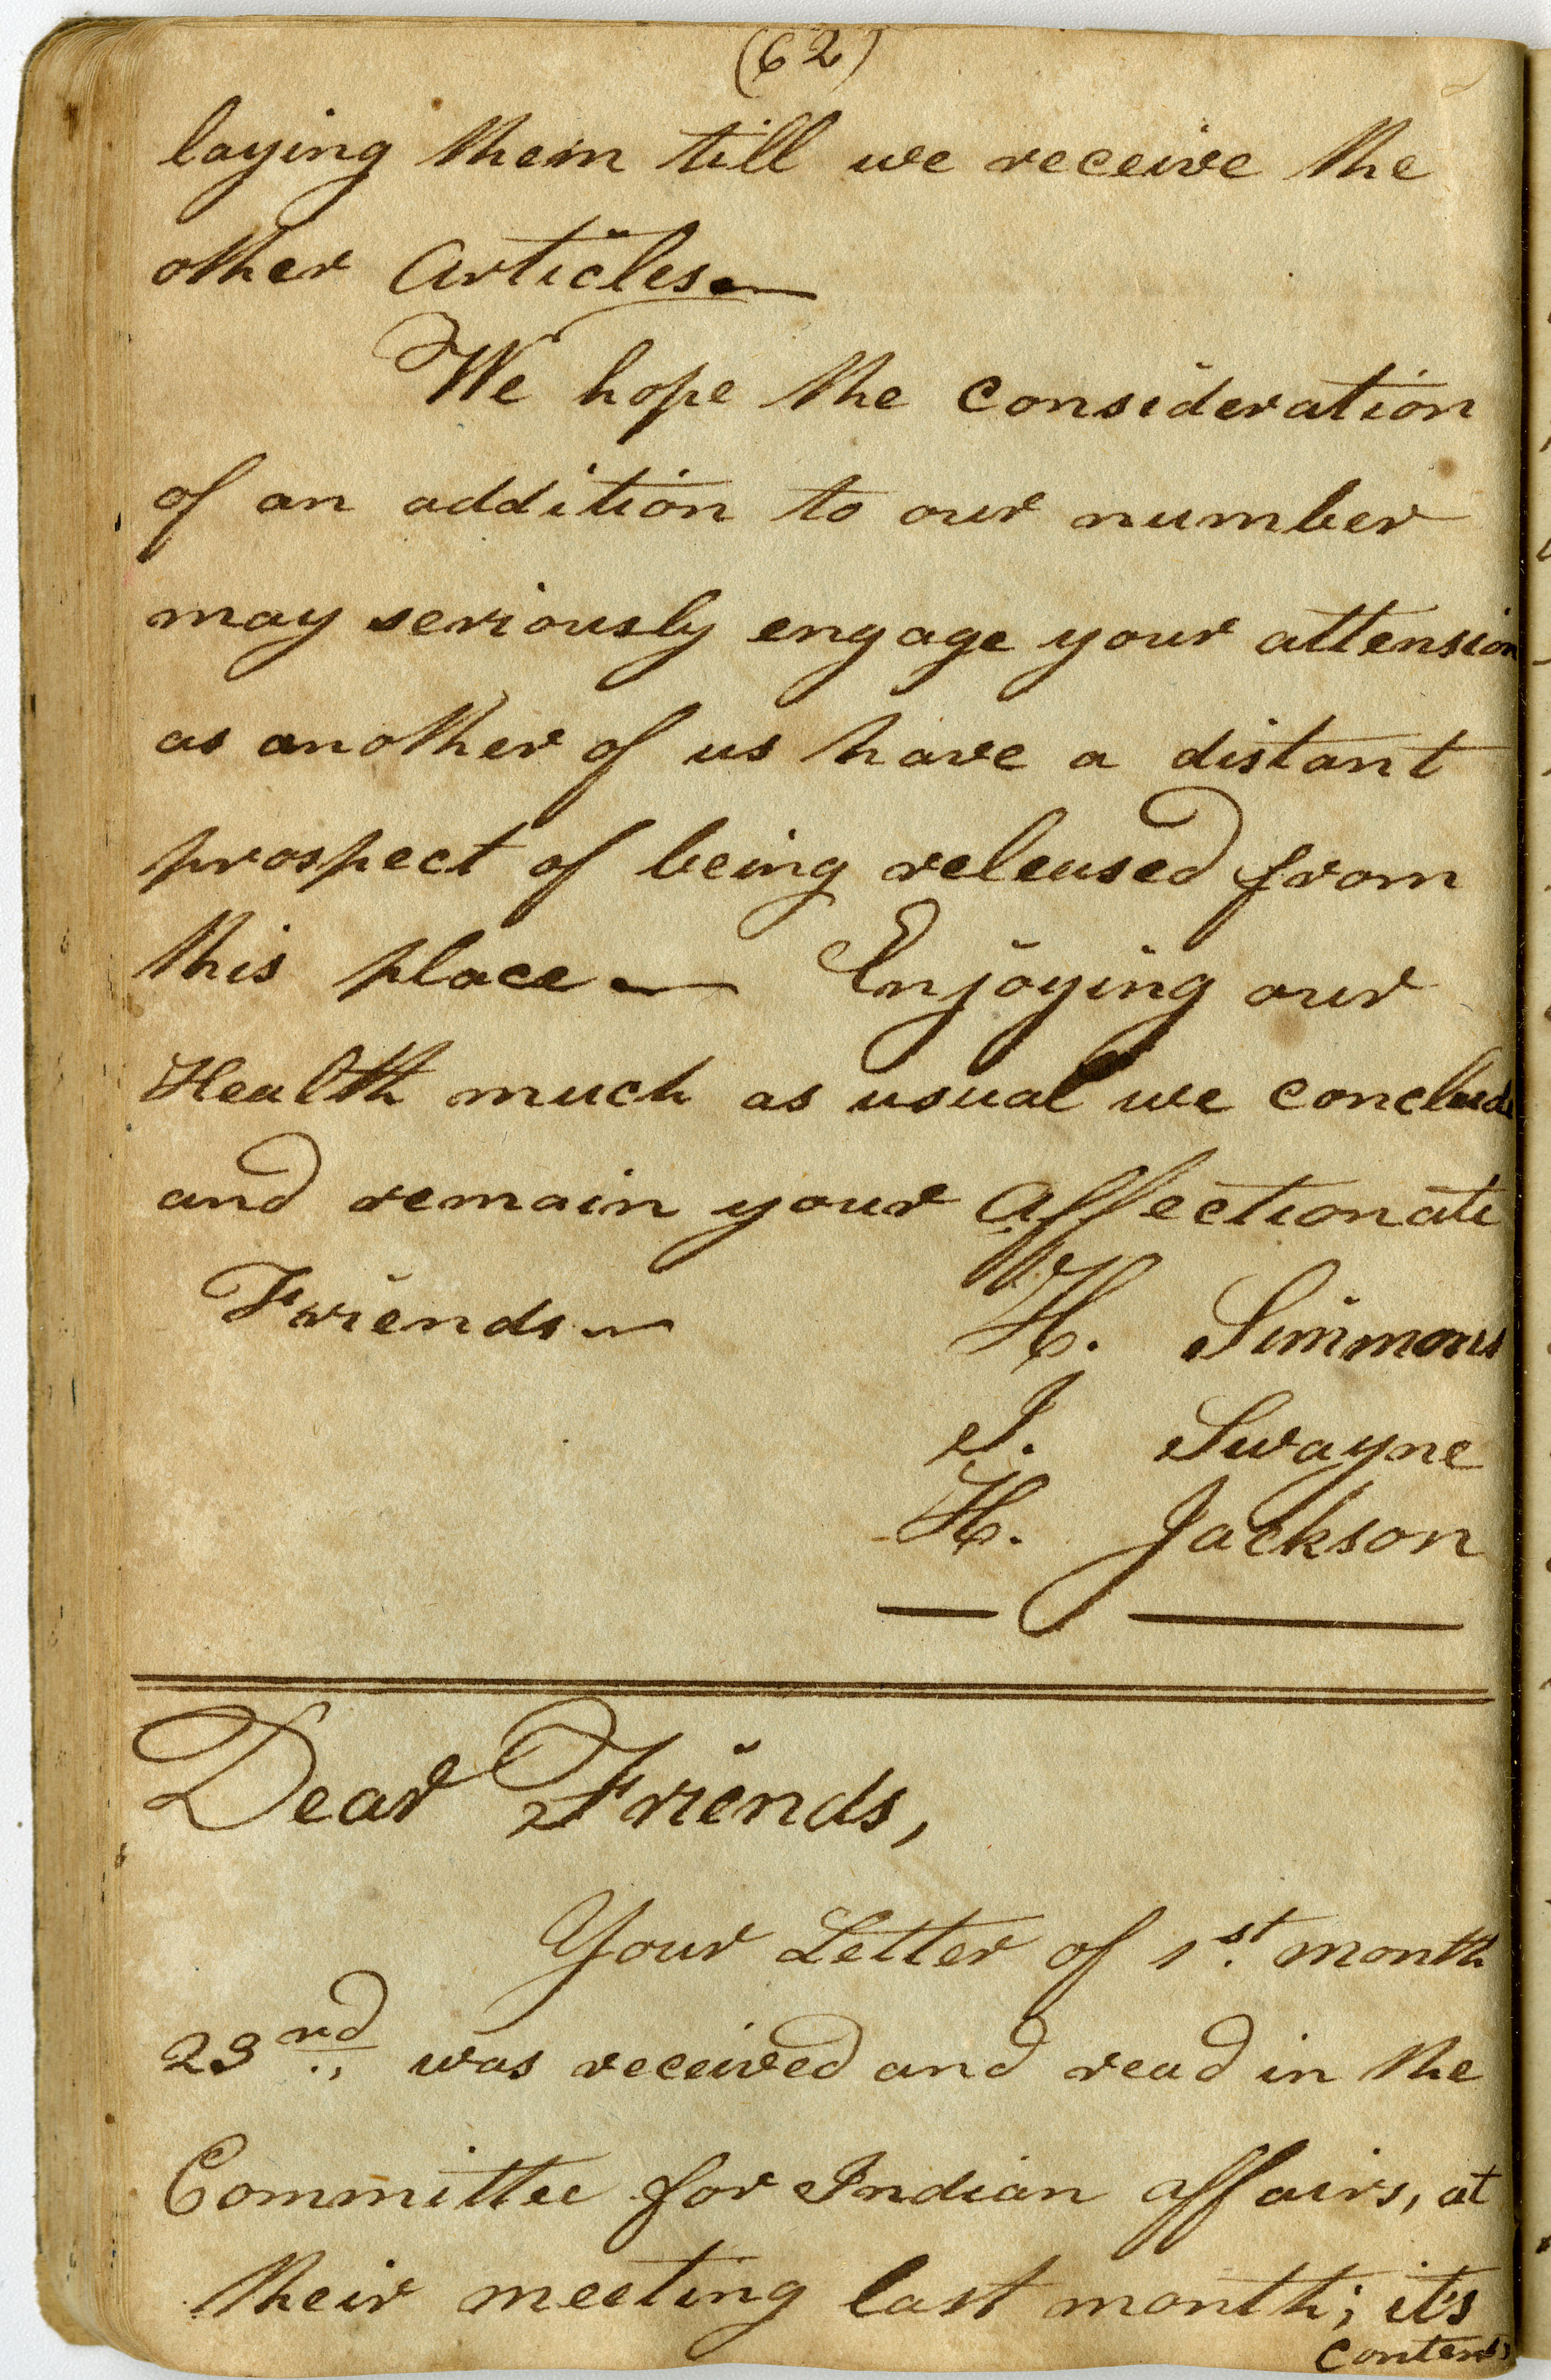 (62)
laying them till we receive the
other Articles—
We hope the consideration
of an addition to our number
may seriously engage your attension
as another of us have a distant
prospect of being released from
this place — Enjoying our
Health much as usual we conclude
and remain your Affectionate
Friends —
H. Simmons
J. Swayne
H. Jackson
Dear Friends,
Your Letter of 1st. month
23nd., was received and read in the
Committee for Indian affairs, at
their meeting last month; it's
contents